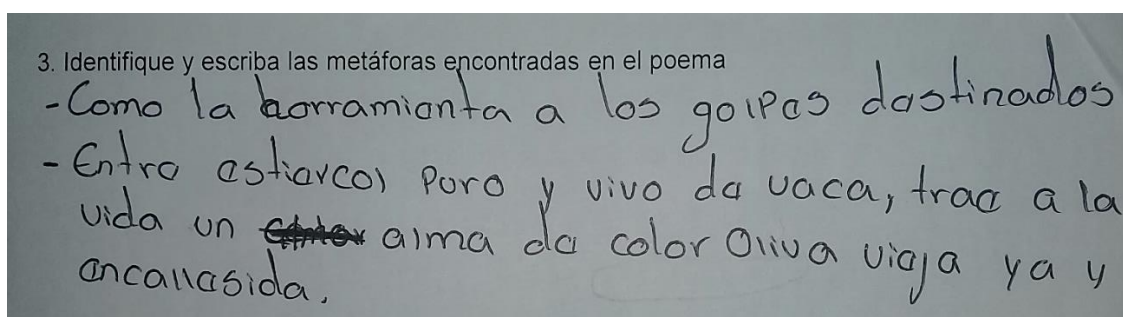 3. Identifique y escriba las metáforas encontradas en el poema
- Como la herramienta a los golpes destinados
- Entre estiercol puro y vivo de vaca, trae a la
vida un alma de color oliva vieja ya y
encallesida.